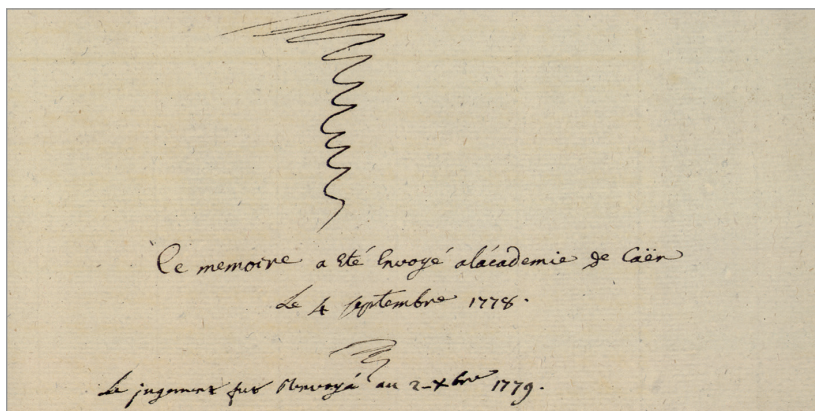 Ce memoire a eté Envoyé alácademie de Caën
Le 4 septembre 1778.
Le jugement fut Renvoyé au 2 Xbre 1779.